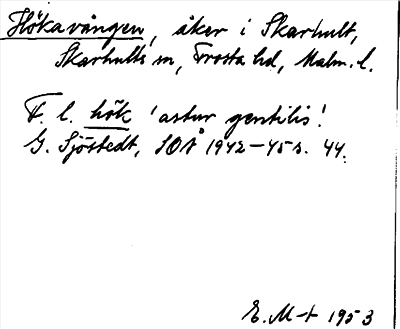 Hökavången, åker i Skarhult,
Skarhults sn, Frosta hd, Malm. l.
F. l. hök 'astur gentilis'.
G. Sjöstedt, SOÅ 1942-45 s. 44.
E. M-t 1953